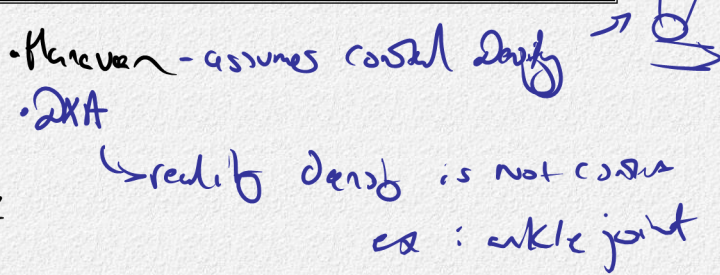 • Hanavan - assumes constant Density →
• DXA
↳ reality density is not constant
ex : ankle joint